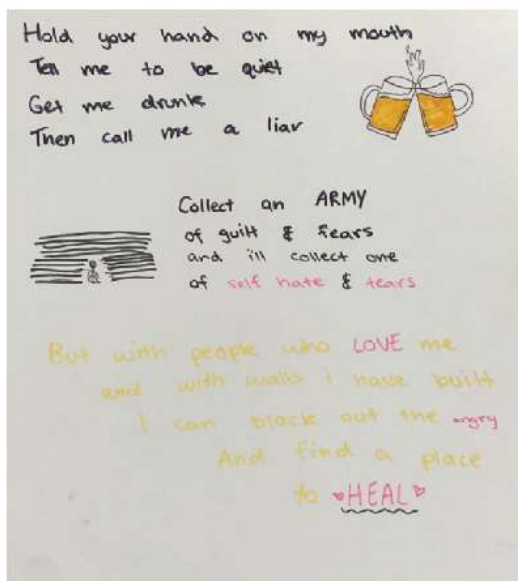 Hold your hand on my mouth
Tell me to be quiet
Get me drunk
Then call me a liar
Collect an ARMY
of guilt & fears
and i'll collect one
of self hate & tears
But with people who LOVE me
and with walls i have built
I can block out the angry
And find a place
to HEAL